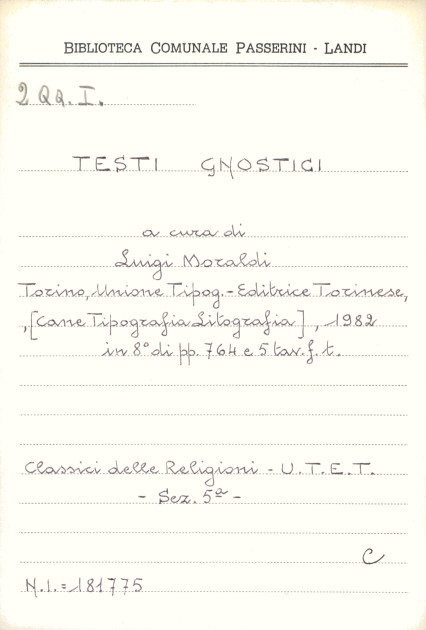 BIBLIOTECA COMUNALE PASSERINI - LANDI
2 QQ. I.
TESTI GNOSTICI
a cura di
Luigi Moraldi
Torino, Unione Tipog.-Editrice Torinese,
,[Cane Tipografia Litografia], 1982
in 8° di pp. 764 e 5 tav. f. t.
Classici delle Religioni - U.T.E.T.
- Sez. 5ª -
C
N.I.=181775